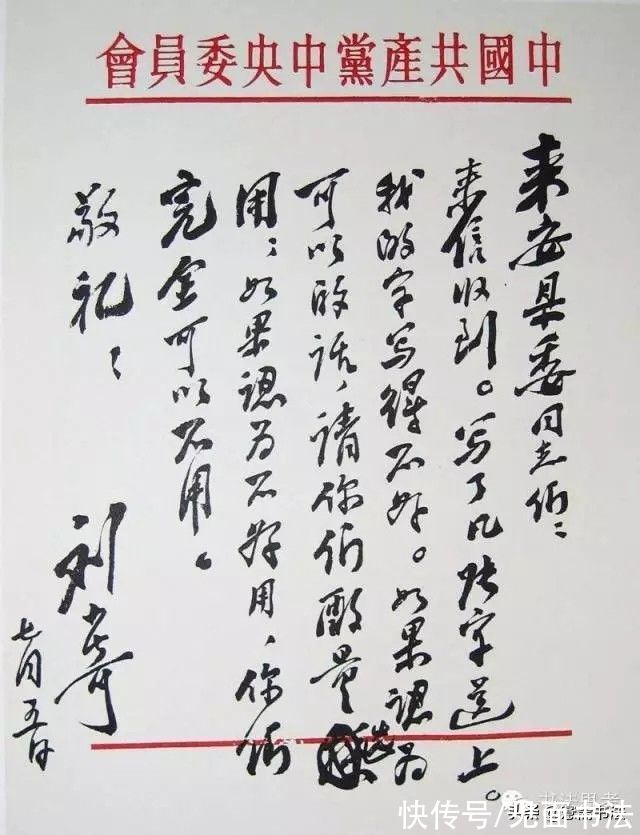 中國共產黨中央委員會
来安县委同志们：
来信收到。写了几张字送上。
我的字写得不好。如果認为
可以的话，请你们酌量选
用；如果認为不好用，你们
完全可以不用。
敬礼！
刘少奇
七月五日
书法思考
快传号/见面书法